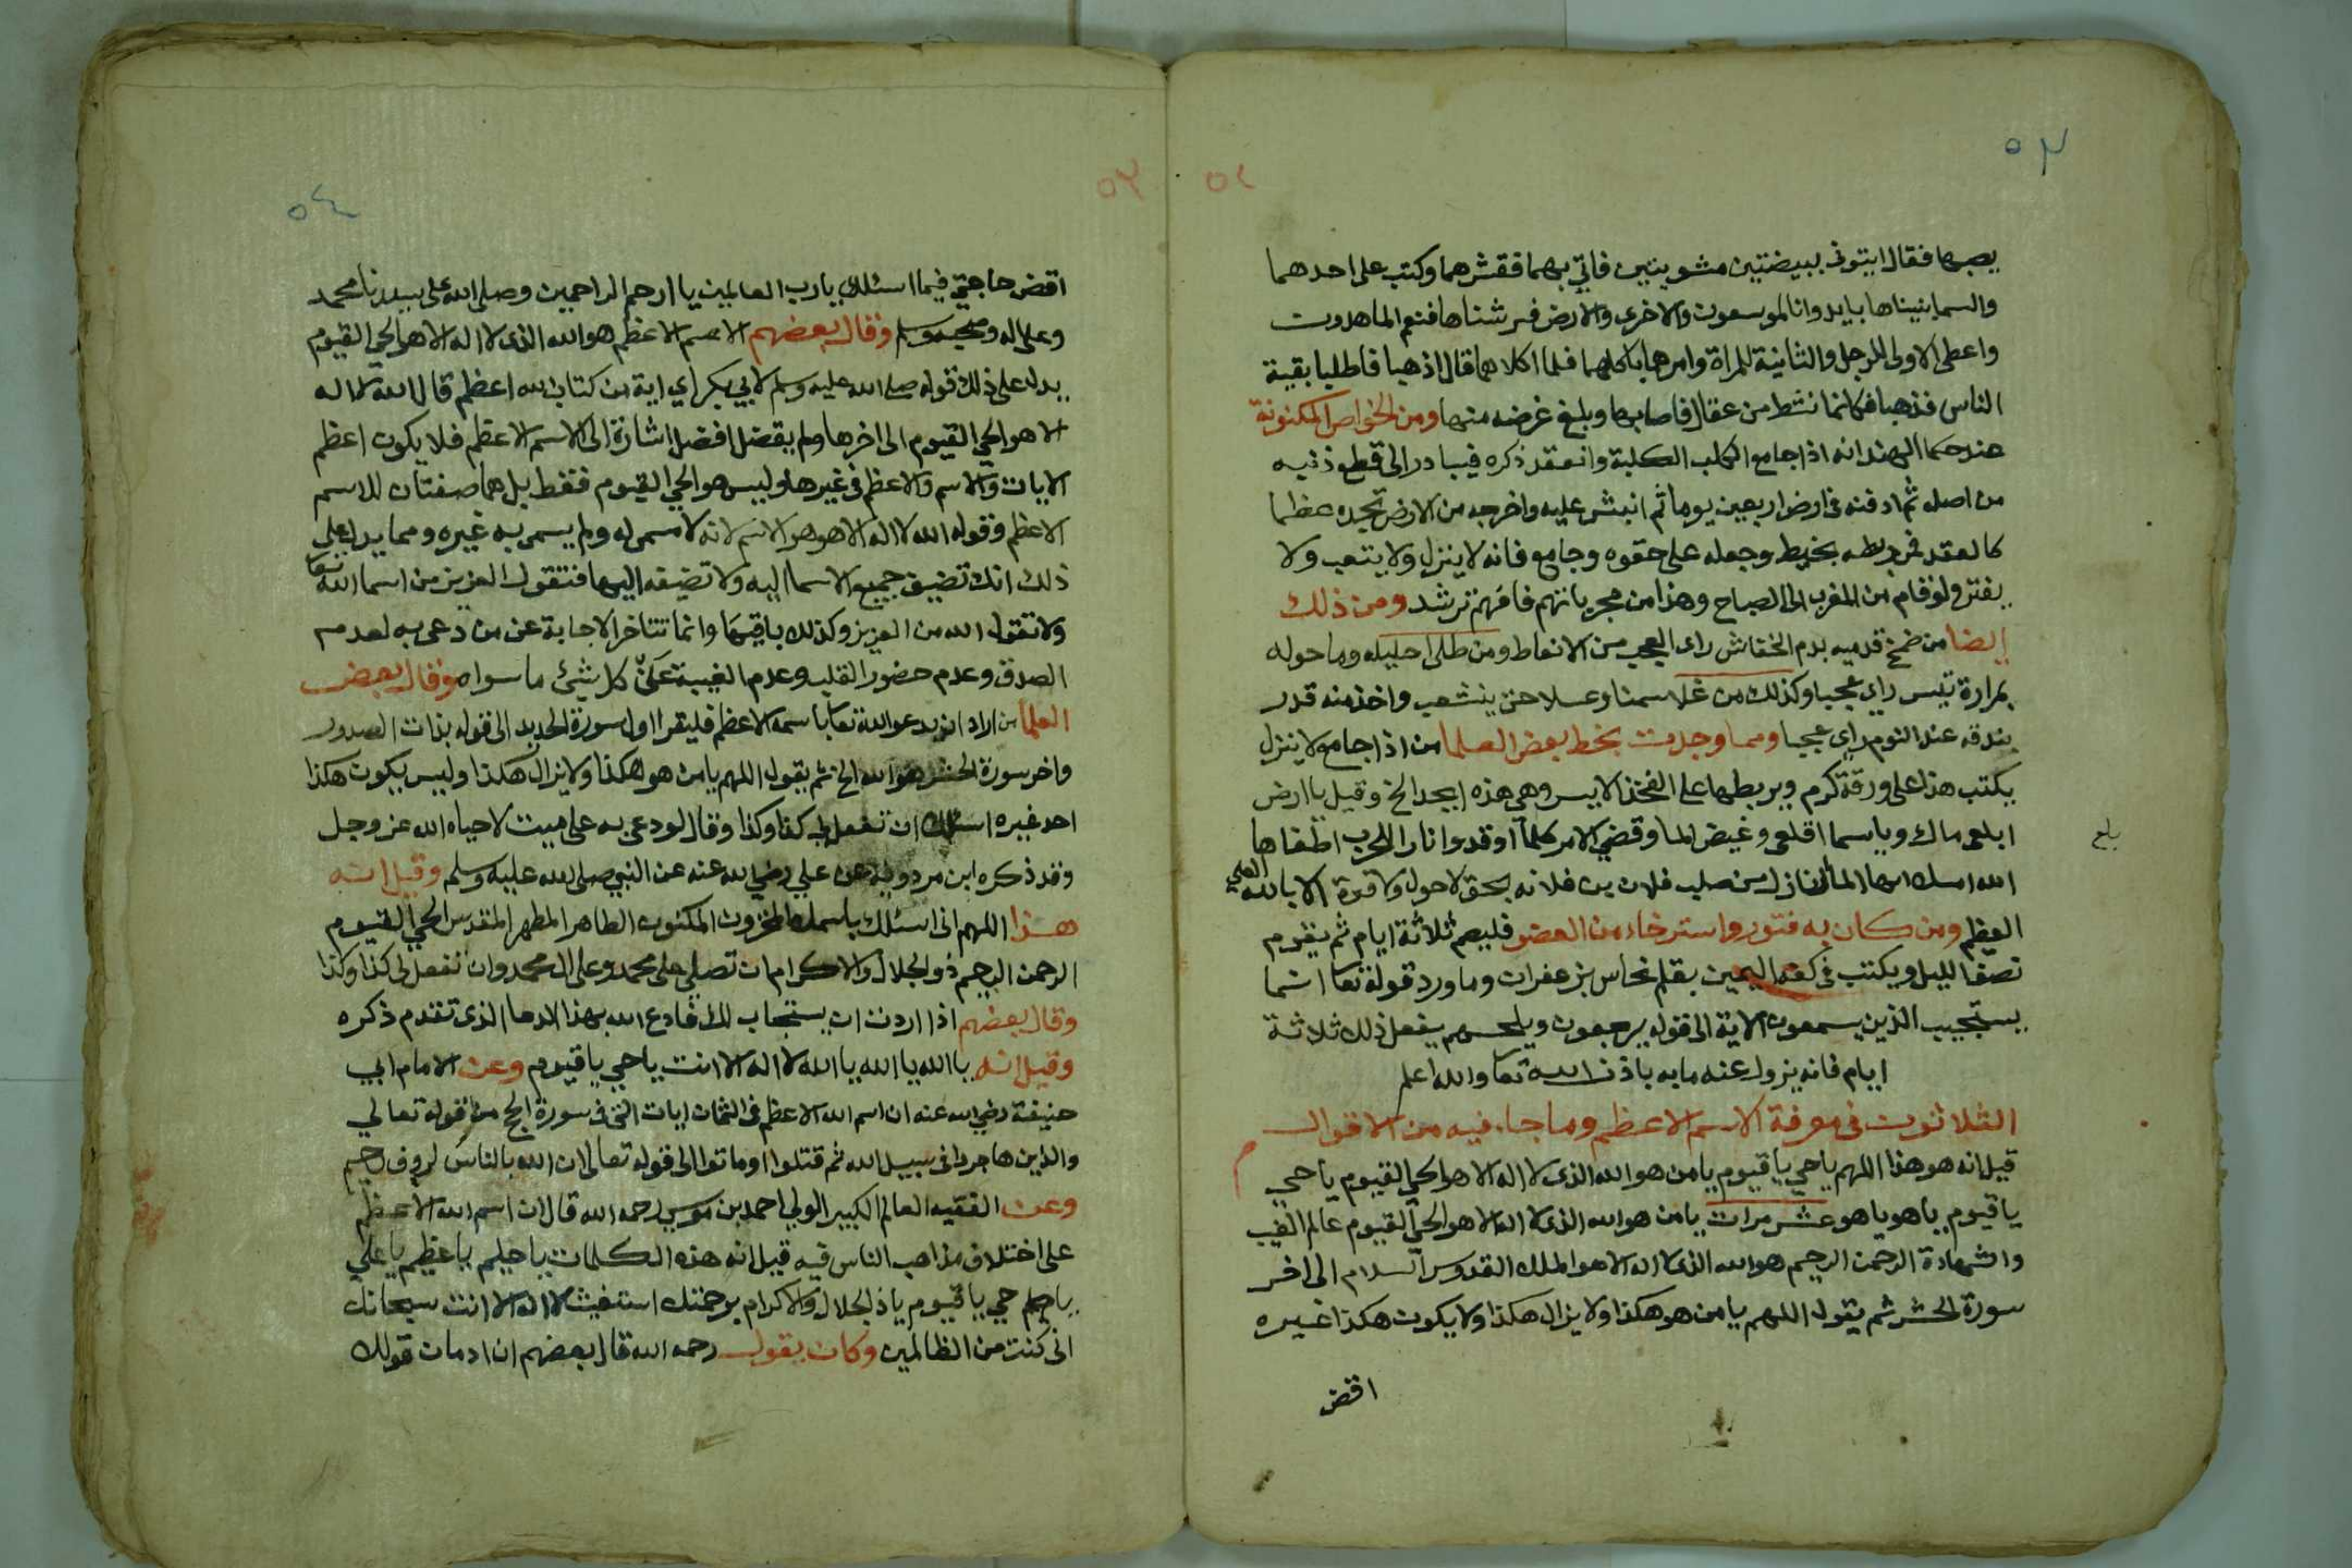 ٥٣
٥٢
يصبها فقال ايتونى ببيضتين مشويتين فاتي بهما فقشرهما وكتب على احدهما
والسما بنيناها بايد وانا لموسعون والاخرى والارض فرشناها فنعم الماهدون
واعطى الاولى للرجل والثانية للمراة وامرهما باكلهما فلما اكلاهما قال اذهبا فاطلبا بقية
الناس فذهبا فكانما نشط من عقال فاصابها وبلغ غرضه منها ومن الخواص المكنونة
عند حكما الهند انه اذا جامع الكلب الكلبة وانعقد ذكره فيبادر الى قطع ذنبه
من اصله ثم ادفنه فى ارض اربعين يوما ثم انبش عليه واخرجه من الارض تجده عظما
كالعقد فمن ربطه بخيط وجعله على حقوه وجامع فانه لا ينزل ولا يتعب ولا
يفتر ولو قام من المغرب الى الصباح وهذا من مجرباتهم فافهم ترشد ومن ذلك
ايضا من ضمخ قدميه بدم الخفاش راى العجب من الانعاط ومن طلى احليله وما حوله
بمرارة تيس راى عجبا وكذلك من غلا سمنا وعسلا حتى ينشعب واخذ منه قدر
بندقه عند النوم راى عجبا ومما وجدت بخط بعض العلما من اذا جامع لا ينزل
يكتب هذا على ورقة كرم ويربطها على الفخذ الايسر وهى هذه ابجد الخ وقيل يا ارض
ابلعى ماك ويا سما اقلعى وغيض الما وقضى الامر كلما اوقدوا نارا للحرب اطفاها
بلغ
الله امسك ايها الما النازل من صلب فلان بن فلانه بحق لا حول ولا قوة الا بالله العلي
العظيم ومن كان به فتور واسترخاء من العضو فليصم ثلاثة ايام ثم يقوم
نصف الليل ويكتب فى كفه اليمين بقلم نحاس بزعفران وماورد قوله تعا انما
يستجيب الذين يسمعون الاية الى قوله يرجعون ويلحسهم يفعل ذلك ثلاثة
ايام فانه يزول عنه ما به باذن الله تعا والله اعلم
الثلاثون فى معرفة الاسم الاعظم وما جاء فيه من الاقوال
قيل انه هو هذا اللهم يا حي يا قيوم يا من هو الله الذى لا اله الا هو الحي القيوم يا حي
يا قيوم يا هو يا هو عشر مرات يا من هو الله الذى لا اله الا هو الحي القيوم عالم الغيب
والشهادة الرحمن الرحيم هو الله الذى لا اله الا هو الملك القدوس السلام الى اخر
سورة الحشر ثم يقول اللهم يا من هو هكذا ولا يزال هكذا ولا يكون هكذا غيره
اقض
٥٣
٥٤
اقض حاجتي فيما اسئلك يا رب العالمين يا ارحم الراحمين وصلى الله على سيدنا محمد
وعلى اله وصحبه وسلم وقال بعضهم الاسم الاعظم هو الله الذى لا اله الا هو الحي القيوم
يدل على ذلك قوله صلى الله عليه وسلم لابي بكر اي اية من كتاب الله اعظم قال الله لا اله
الا هو الحي القيوم الى اخرها ولم يقصل افضل اشارة الى الاسم الاعظم فلا يكون اعظم
الايات والاسم والاعظم فى غيرها وليس هو الحي القيوم فقط بل هما صفتان للاسم
الاعظم وقوله الله لا اله الا هو هو الاسم لانه لا سمى له ولم يسمى به غيره ومما يدل على
ذلك انك تضيف جميع الاسما اليه ولا تضيفه اليها فتقول العزيز من اسما الله تعا
ولا تقول الله من العزيز وكذلك باقيها وانما تتاخر الاجابة عن من دعى به لعدم
الصدق وعدم حضور القلب وعدم الغيبة عن كل شئ ما سواه وقال بعض
العلما من اراد ان يدعو الله تعا باسمه الاعظم فليقرا اول سورة الحديد الى قوله بذات الصدور
واخر سورة الحشر هو الله الخ ثم يقول اللهم يا من هو هكذا ولا يزال هكذا وليس يكون هكذا
احد غيره اسئلك ان تفعل لى كذا وكذا وقال لو دعى به على ميت لاحياه الله عز وجل
وقد ذكره ابن مردويه عن علي رضي الله عنه عن النبي صلى الله عليه وسلم وقيل انه
هذا اللهم انى اسئلك باسمك المخزون المكنون الطاهر المطهر المقدس الحي القيوم
الرحمن الرحيم ذو الجلال والاكرام ان تصلي على محمد وعلى ال محمد وان تفعل لى كذا وكذا
وقال بعضهم اذا اردت ان يستجاب لك فادع الله بهذا الدعا الذى تقدم ذكره
وقيل انه يا الله يا الله يا الله لا اله الا انت يا حي يا قيوم وعن الامام ابي
حنيفة رضي الله عنه ان اسم الله الاعظم فى الثمان ايات التى فى سورة الحج من قوله تعالى
والذين هاجروا فى سبيل الله ثم قتلوا او ماتوا الى قوله تعالى ان الله بالناس لروف رحيم
وعن الفقيه العالم الكبير الولي احمد بن موسى رحمه الله قال ان اسم الله الاعظم
على اختلاف مذاهب الناس فيه قيل انه هذه الكلمات يا حليم يا عظيم يا علي
حي يا قيوم يا ذا لجلال والاكرام برحمتك استغيث لا اله الا انت سبحانك
انى كنت من الظالمين وكان يقول رحمه الله قال بعضهم ان ادمان قولك